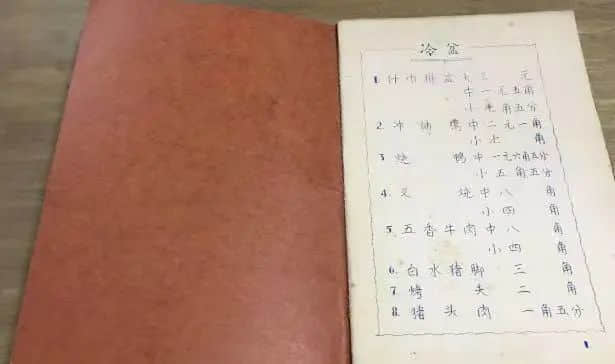 冷盆
1. 什市拼盆大三 元
中一元五角
小 角五分
2. 冲 中二元一角
小七 角
3. 烧 鸭中一元六角五分
小五角五分
4. 叉 烧中八 角
小四 角
5. 五香牛肉中八 角
小四 角
6. 白水猪脚 三 角
7. 烤 夫 二 角
8. 猪头肉 一角五分
1